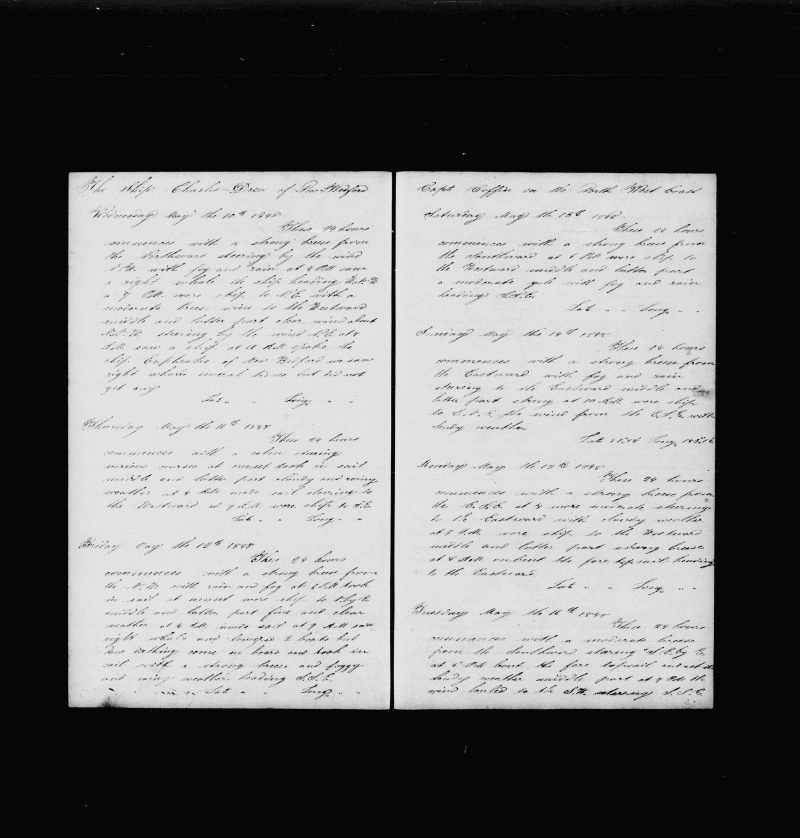 The Ship Charles Drew of New Bedford
Wednesday May the 10th 1848
These 24 hours
commences with a strong breese from
the Northward steering by the wind
with fog and rain at 4 PM saw
a right whale the ship heading
a 7 P.M. wore ship to with a
moderate breese wine to the Westward
middle and latter part clear wind about
steering by the wind at 4
A.M. saw a ship at 10 A.M. spoke the
ship Euphrates of New Bedford we saw
right whales several times but did not
get any
Lat " " Long " "
Thursday May the 11th 1848
These 24 hours
commences with a calm stearing
various corses at sunset took in sail
middle and latter part cloudy and rainy
weather at 4 AM made sail stearing to
the Westward at 9 A.M. wore ship to
Lat " " Long " "
Friday May the 12th 1848
These 24 hours
commences with a strong breese from
the with rain and fog at took
in sail at sunset wore ship to
middle and latter part fine and clear
weather at 4 A.M. made sail at 9 A.M. saw
right whale and lowered 2 boats but
nothing come on board and took in
sail with a strong breese and foggy
and rainy weather heading S.S.E.
Lat " " Long " "
Capt Coffin on the North West Coast
Saturday May the 13th 1848
These 24 hours
commences with a strong breese from
the Southward at 6 P.M. wore ship to
the Westward middle and latter part
a moderate gale with fog and rain
heading
Lat " " Long " "
Sunday May the 14th 1848
These 24 hours
commences with a strong breese from
the Eastward with fog and rain
stearing to the Eastward middle and
latter part strong at 10 A.M. wore ship
to the wind from the with
cloudy weather
Lat Long
Monday May the 15th 1848
These 24 hours
commences with a strong breese from
the at 4 more moderate stearing
to the Eastward with cloudy weather
at 8 P.M. wore ship to the Westward
middle and latter part strong breese
at 4 A.M. unbent the fore top sail heading
to the Eastward
Lat " " Long " "
Tuesday May the 16th 1848
These 24 hours
commences with a moderate breese
from the Southward stearing
at 6 P.M. bent the fore topsail
cloudy weather middle part at 4 A.M. the
wind hauled to the S.W. stearing S.S.E.